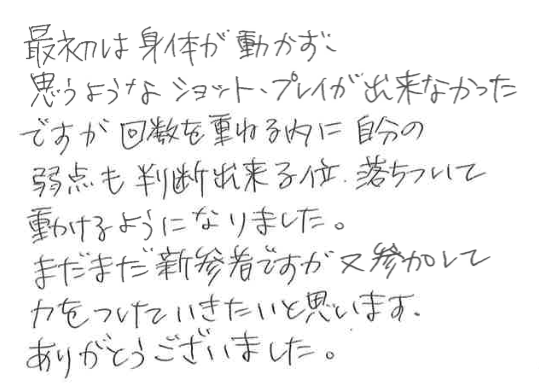 最初は身体が動かず、
思うようなショット、プレイが出来なかった
ですが回数を重ねる内に自分の
弱点も判断出来る位、落ちついて
動けるようになりました。
まだまだ新参者ですが又参加して
力をつけていきたいと思います。
ありがとうございました。